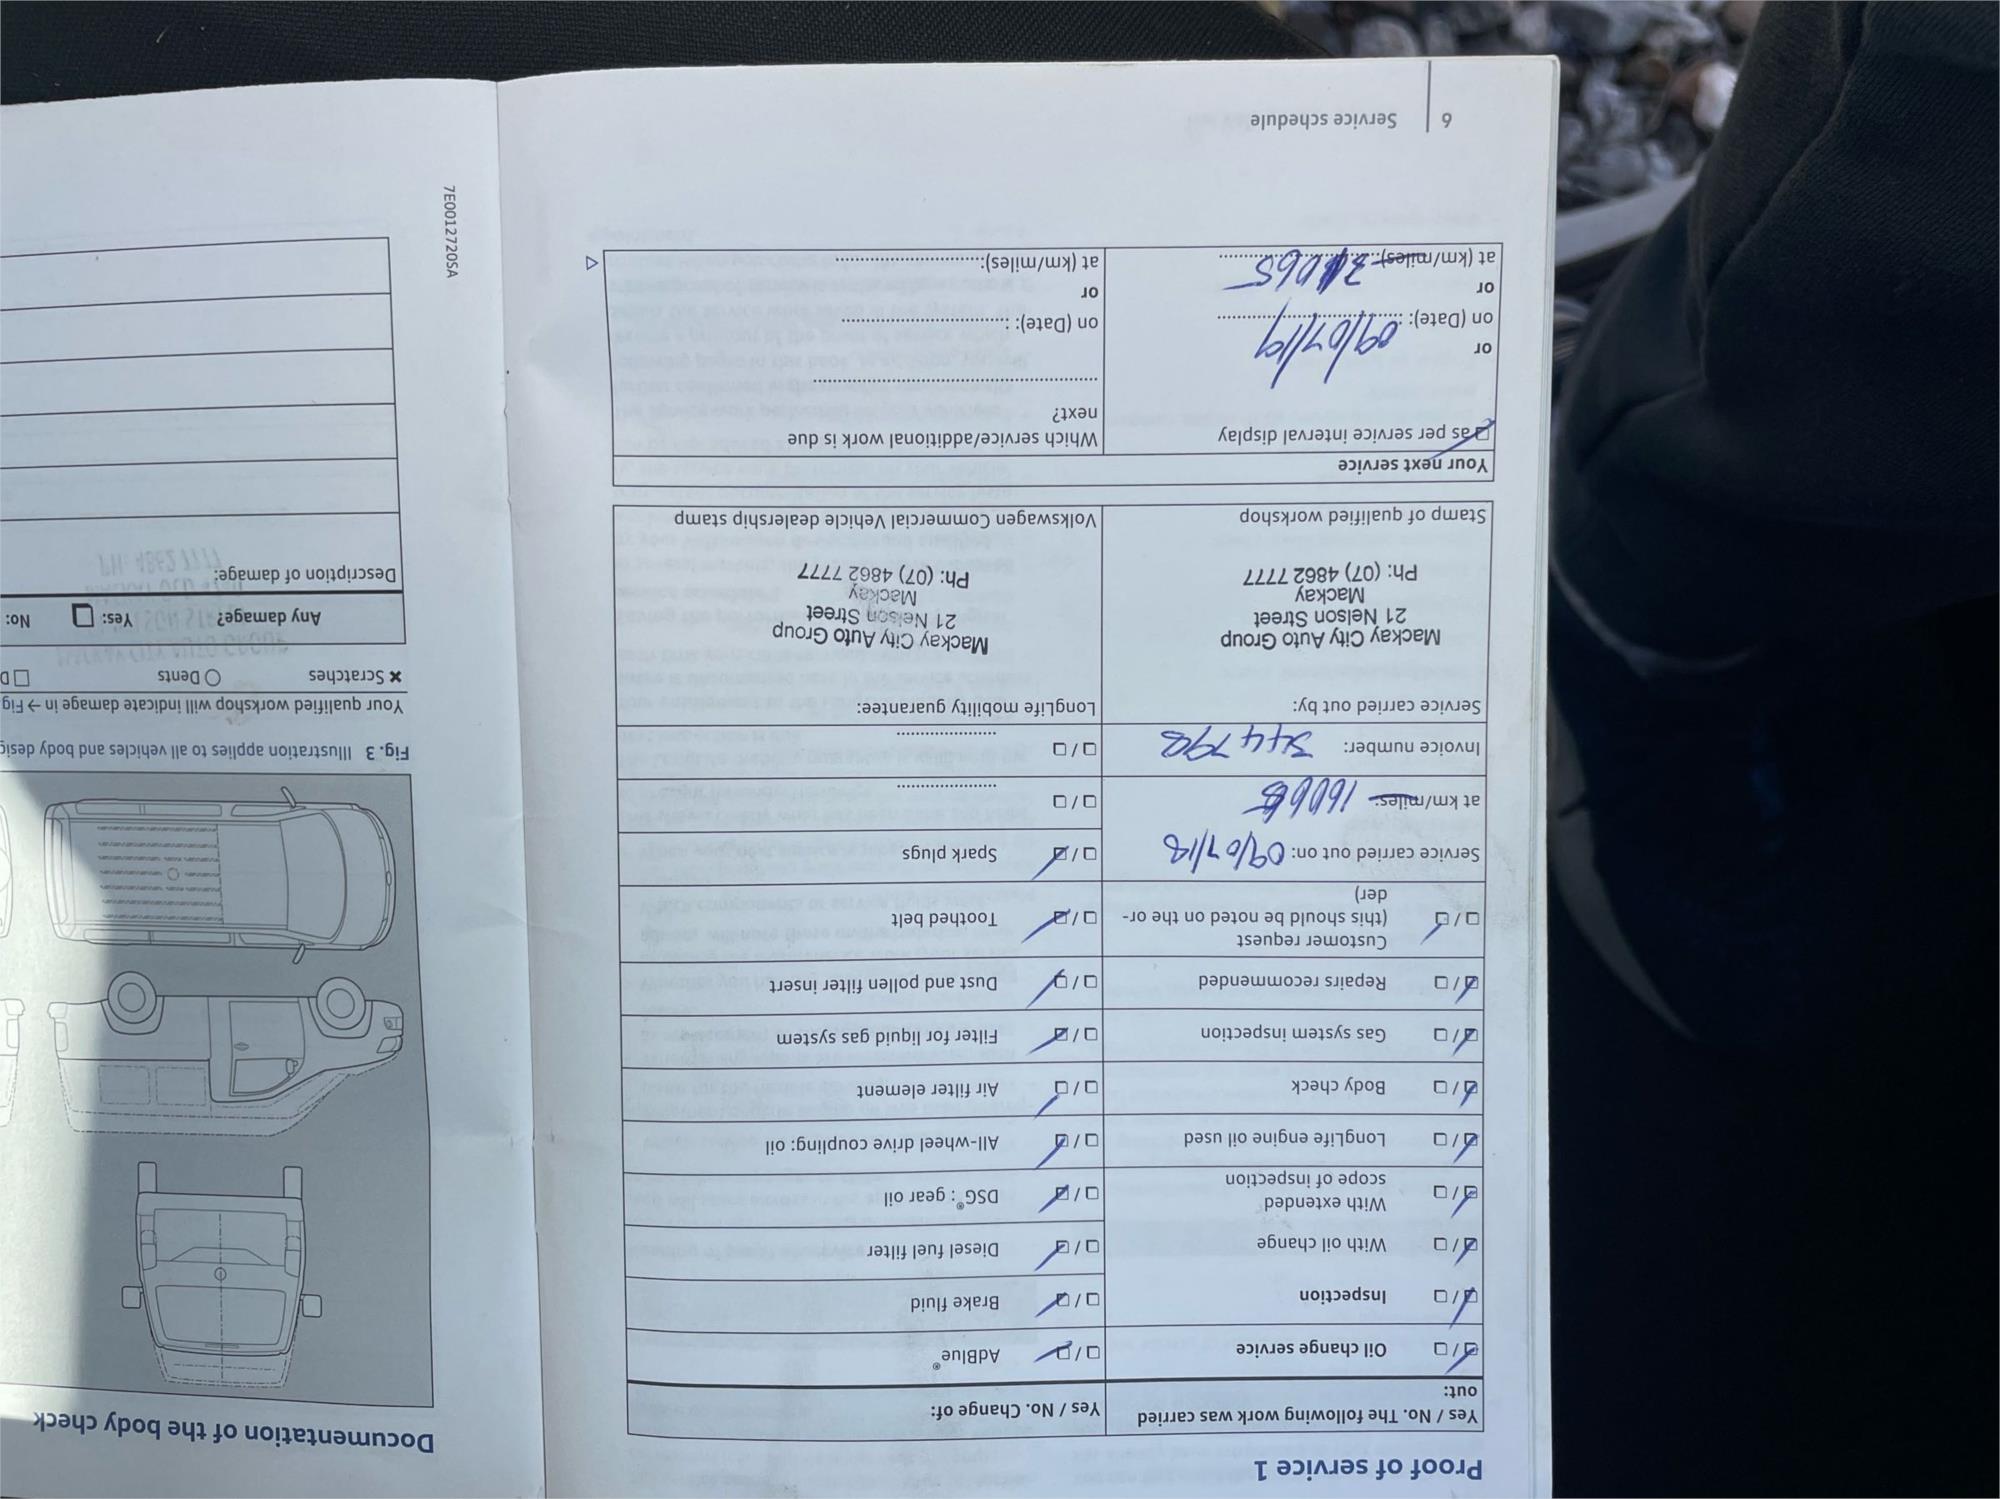 Proof of service 1
Yes / No. The following work was carried out:
Yes / No. Change of:
Oil change service
AdBlue®
Inspection
Brake fluid
With oil change
Diesel fuel filter
With extended scope of inspection
DSG®: gear oil
LongLife engine oil used
All-wheel drive coupling: oil
Body check
Air filter element
Gas system inspection
Filter for liquid gas system
Repairs recommended
Dust and pollen filter insert
Customer request
(this should be noted on the or-
der)
Toothed belt
Spark plugs
Service carried out on: 09/07/18
at km/miles:
Invoice number: 344792
Service carried out by:
Mackay City Auto Group
21 Nelson Street
Mackay
Ph: (07) 4862 7777
Stamp of qualified workshop
LongLife mobility guarantee:
Mackay City Auto Group
21 Nelson Street
Mackay
Ph: (07) 4862 7777
Volkswagen Commercial Vehicle dealership stamp
Your next service
as per service interval display
or
on (Date): 09/07/19
or
at (km/miles):
Which service/additional work is due
next?
on (Date):
or
at (km/miles):
6 Service schedule
Documentation of the body check
Fig. 3 Illustration applies to all vehicles and body desig
Your qualified workshop will indicate damage in → Fig
Scratches
Dents
D
Any damage? Yes: No:
Description of damage:
7E0012720SA